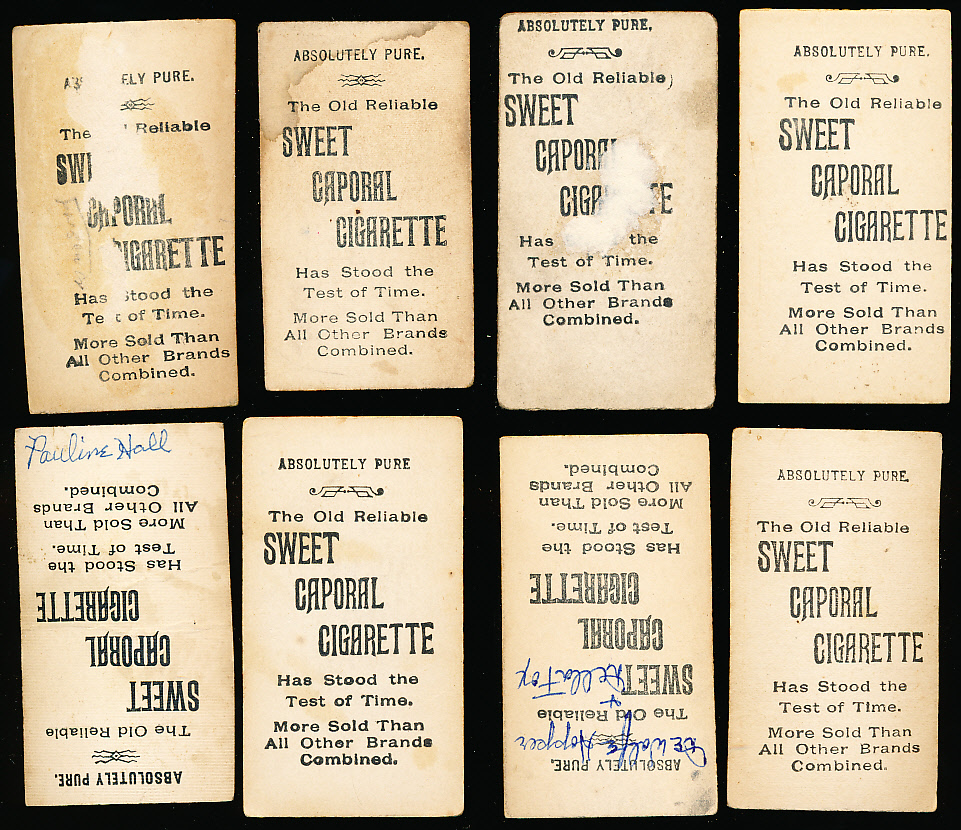 ELY PURE.
The Reliable
CAPORAL
CIGARETTE
Has Stood the
Test of Time.
More Sold Than
All Other Brands
Combined.
ABSOLUTELY PURE.
The Old Reliable
SWEET
CAPORAL
CIGARETTE
Has Stood the
Test of Time.
More Sold Than
All Other Brands
Combined.
ABSOLUTELY PURE.
The Old Reliable
SWEET
CAPORAL
Has the
Test of Time.
More Sold Than
All Other Brands
Combined.
ABSOLUTELY PURE.
The Old Reliable
SWEET
CAPORAL
CIGARETTE
Has Stood the
Test of Time.
More Sold Than
All Other Brands
Combined.
Pauline Hall
ABSOLUTELY PURE.
The Old Reliable
SWEET
CAPORAL
CIGARETTE
Has Stood the
Test of Time.
More Sold Than
All Other Brands
Combined.
ABSOLUTELY PURE
The Old Reliable
SWEET
CAPORAL
CIGARETTE
Has Stood the
Test of Time.
More Sold Than
All Other Brands
Combined.
ABSOLUTELY PURE.
De Wolfe Hopper
The Old Reliable
+
Della Fox
SWEET
CAPORAL
CIGARETTE
Has Stood the
Test of Time.
More Sold Than
All Other Brands
Combined.
ABSOLUTELY PURE.
The Old Reliable
SWEET
CAPORAL
CIGARETTE
Has Stood the
Test of Time.
More Sold Than
All Other Brands
Combined.